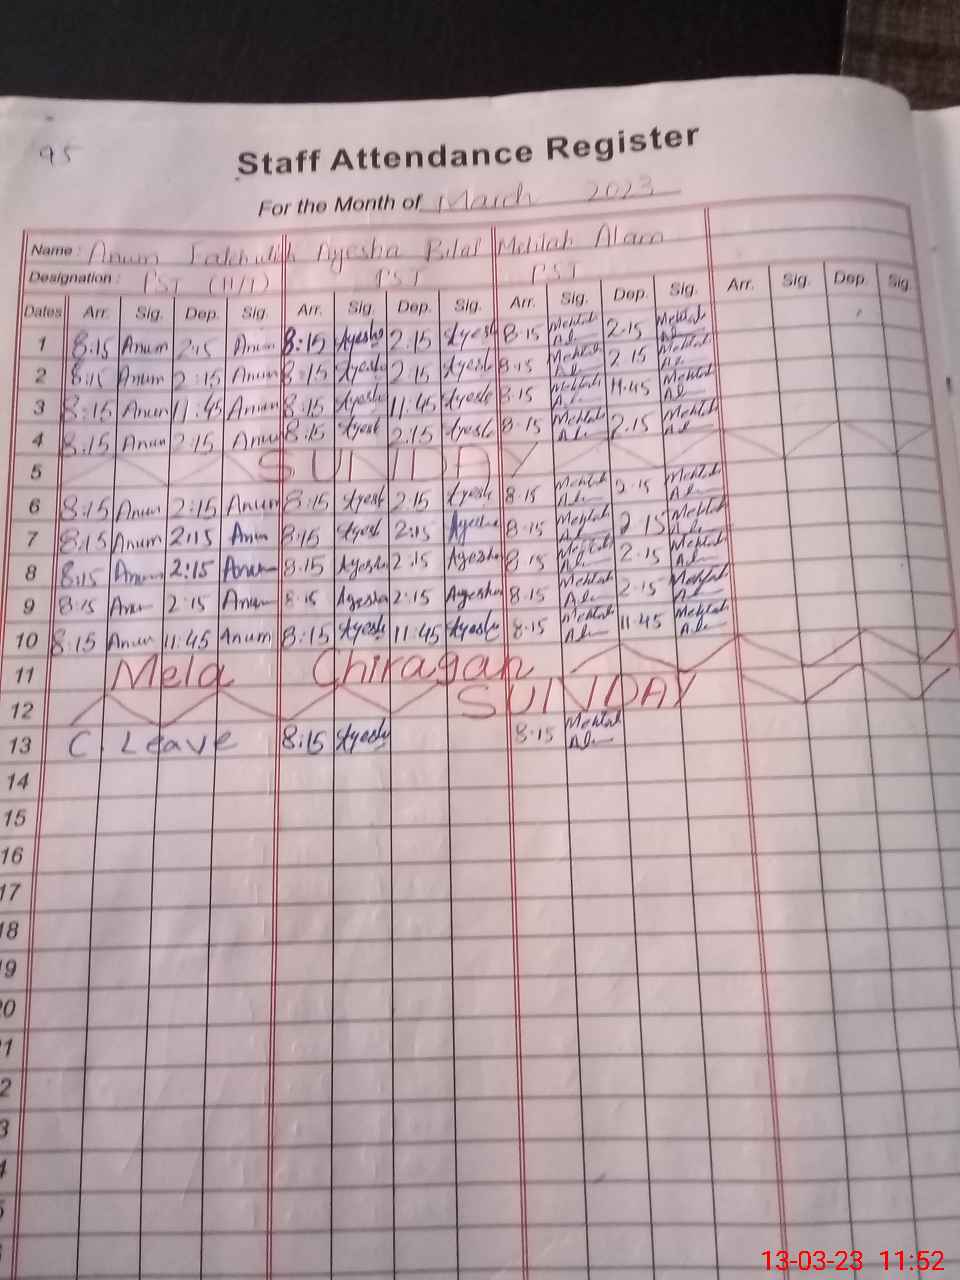 95
Staff Attendance Register
For the Month of March 2023
Name : Anum Ayesha Bilal Mehtab Alam
Designation : PST (H/T) PST PST
Dates Arr. Sig. Dep. Sig. Arr. Sig. Dep. Sig. Arr. Sig. Dep. Sig. Arr. Sig. Dep. Sig.
1 8:15 Anum 2:15 Anum 8:15 Ayesha 2:15 Ayesh 8:15 Mehtab 2:15 Mehtab
2 8:15 Anum 2:15 Anum 8:15 Ayesh 2:15 Ayesh 8:15 Mehtab 2:15 Mehtab
3 8:15 Anum 11:45 Anum 8:15 Ayesh 11:45 Ayesh 8:15 Mehtab 11:45 Mehtab
4 8:15 Anum 2:15 Anum 8:15 Ayesh 2:15 Ayesh 8:15 Mehtab 2:15 Mehtab
5 SUNDAY
6 8:15 Anum 2:15 Anum 8:15 Ayesh 2:15 Ayesh 8:15 Mehtab 2:15 Mehtab
7 8:15 Anum 2:15 Anum 8:15 Ayesh 2:15 Ayesha 8:15 Mehtab 2:15 Mehtab
8 8:15 Anum 2:15 Anum 8:15 Ayesha 2:15 Ayesha 8:15 Mehtab 2:15 Mehtab
9 8:15 Anum 2:15 Anum 8:15 Ayesha 2:15 Ayesha 8:15 Mehtab 2:15 Mehtab
10 8:15 Anum 11:45 Anum 8:15 Ayesh 11:45 Ayesha 8:15 Mehtab 11:45 Mehtab
11 Mela Chiragan
12 SUNDAY
13 C. Leave 8:15 Ayesha 8:15 Mehtab
14
15
16
17
18
19
20
13-03-23 11:52